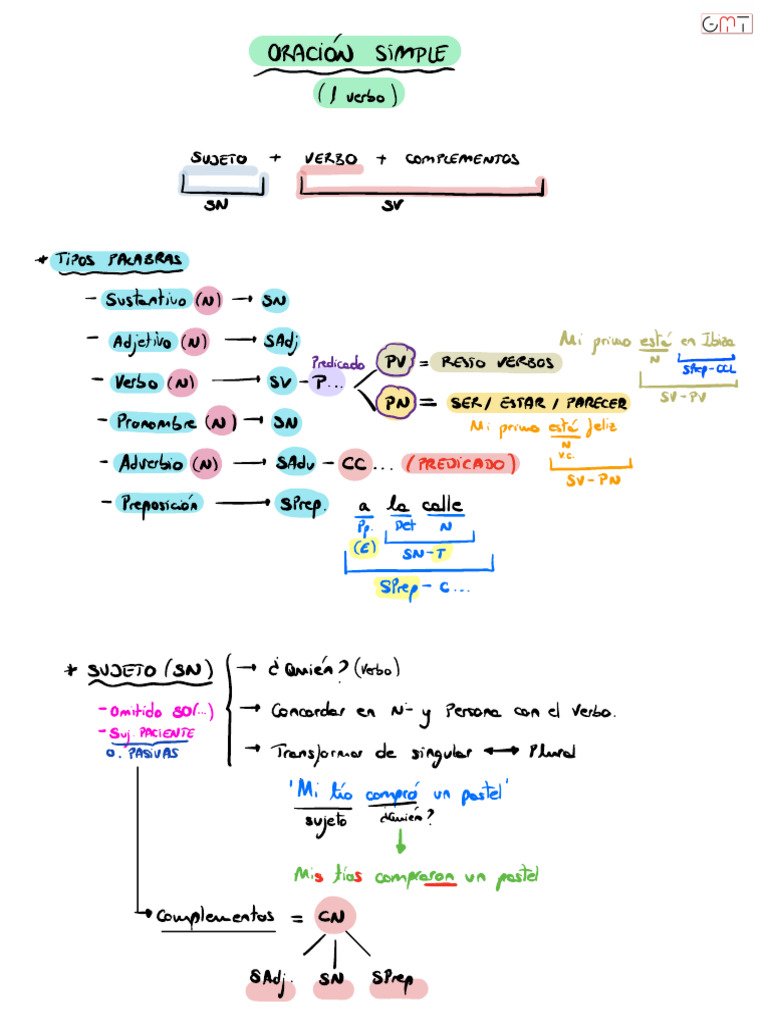 GMT
ORACIÓN SIMPLE
(1 verbo)
SUJETO + VERBO + COMPLEMENTOS
SN SV
* TIPOS PALABRAS
- Sustantivo (N) → SN
- Adjetivo (N) → SAdj
- Verbo (N) → SV - P...
Predicado
PV = RESTO VERBOS
Mi primo está en Ibiza
N SPrep-CCL
SV-PV
PN = SER/ESTAR/PARECER
Mi primo está feliz
N
VC.
SV-PN
- Pronombre (N) → SN
- Adverbio (N) → SAdv - CC... (PREDICADO)
- Preposición → SPrep.
a la calle
Pp. Det N
(E) SN-T
SPrep - C...
* SUJETO (SN)
- Omitido SO(...)
- Suj. PACIENTE
O. PASIVAS
→ ¿Quién? (verbo)
→ Concordar en Nº y Persona con el Verbo.
→ Transformar de singular ↔ Plural
'Mi tío compró un pastel'
sujeto ¿Quién?
Mis tías compraron un pastel
→ Complementos = CN
SAdj. SN SPrep